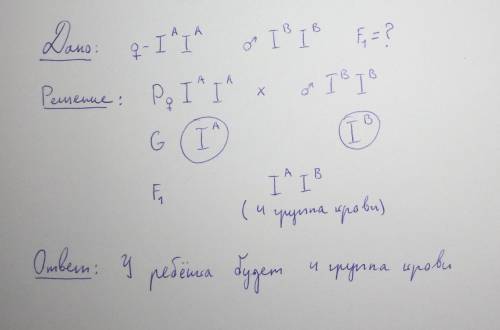 Дано: ♀-IᴬIᴬ ♂ IᴮIᴮ F₁=?
Решение: P♀ IᴬIᴬ x ♂ IᴮIᴮ
G Iᴬ Iᴮ
F₁ IᴬIᴮ
(4 группа крови)
Ответ: У ребёнка будет 4 группа крови